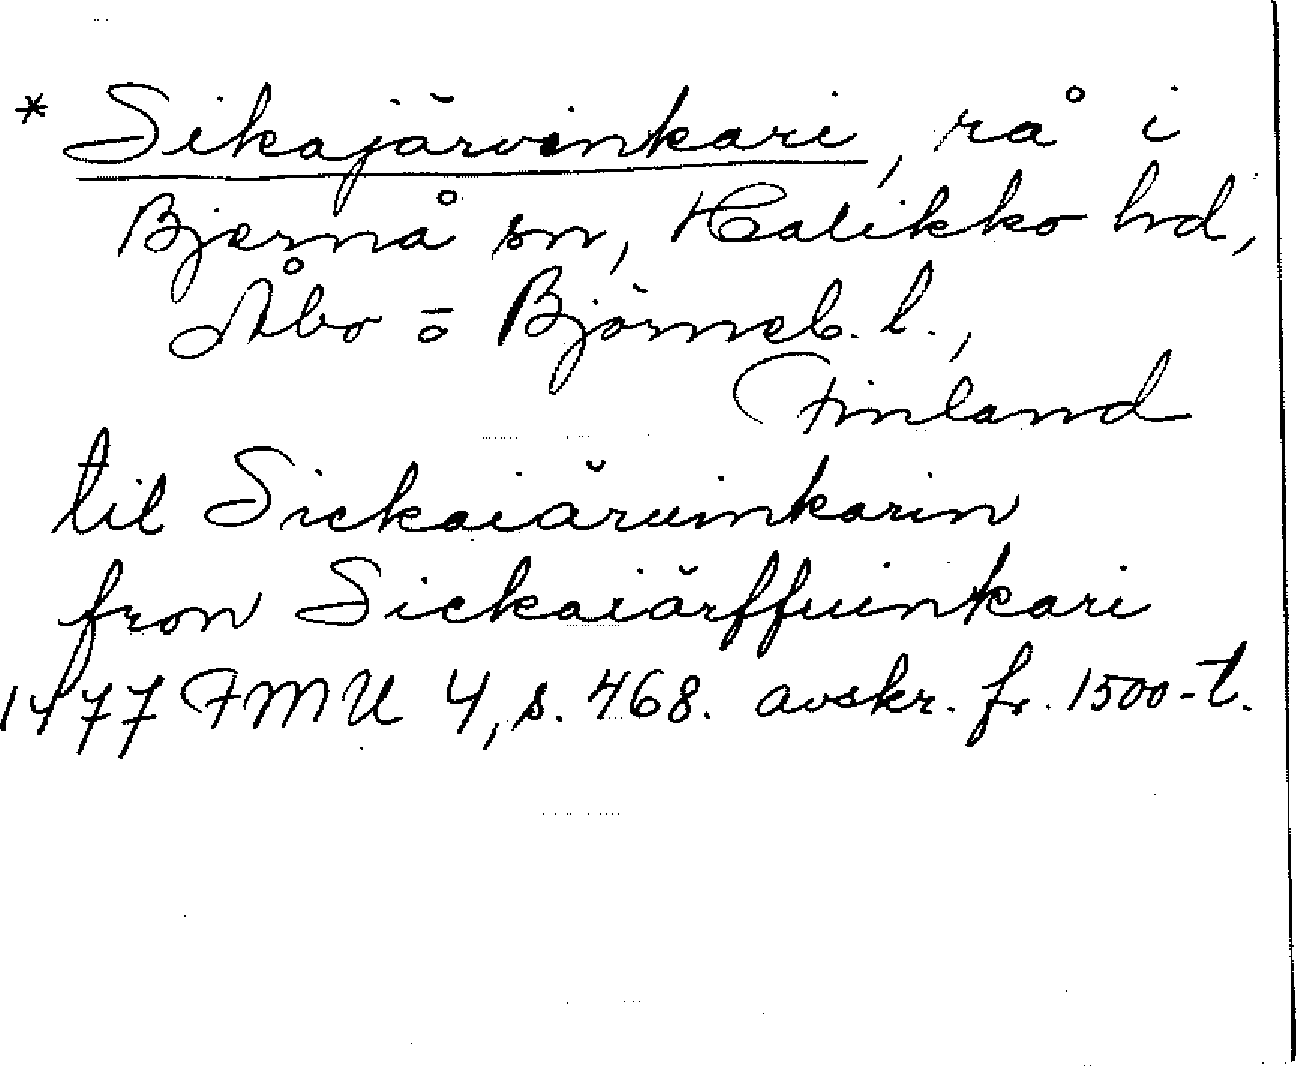 * Sikajärvinkari, rå i
Bjernå sn, Halikko hd,
Åbo o Björneb. l.,
Finland
til Sickaiäruinkarin
fron Sickaiärffuinkari
1477 FMU 4, s. 468. avskr. fr. 1500-t.